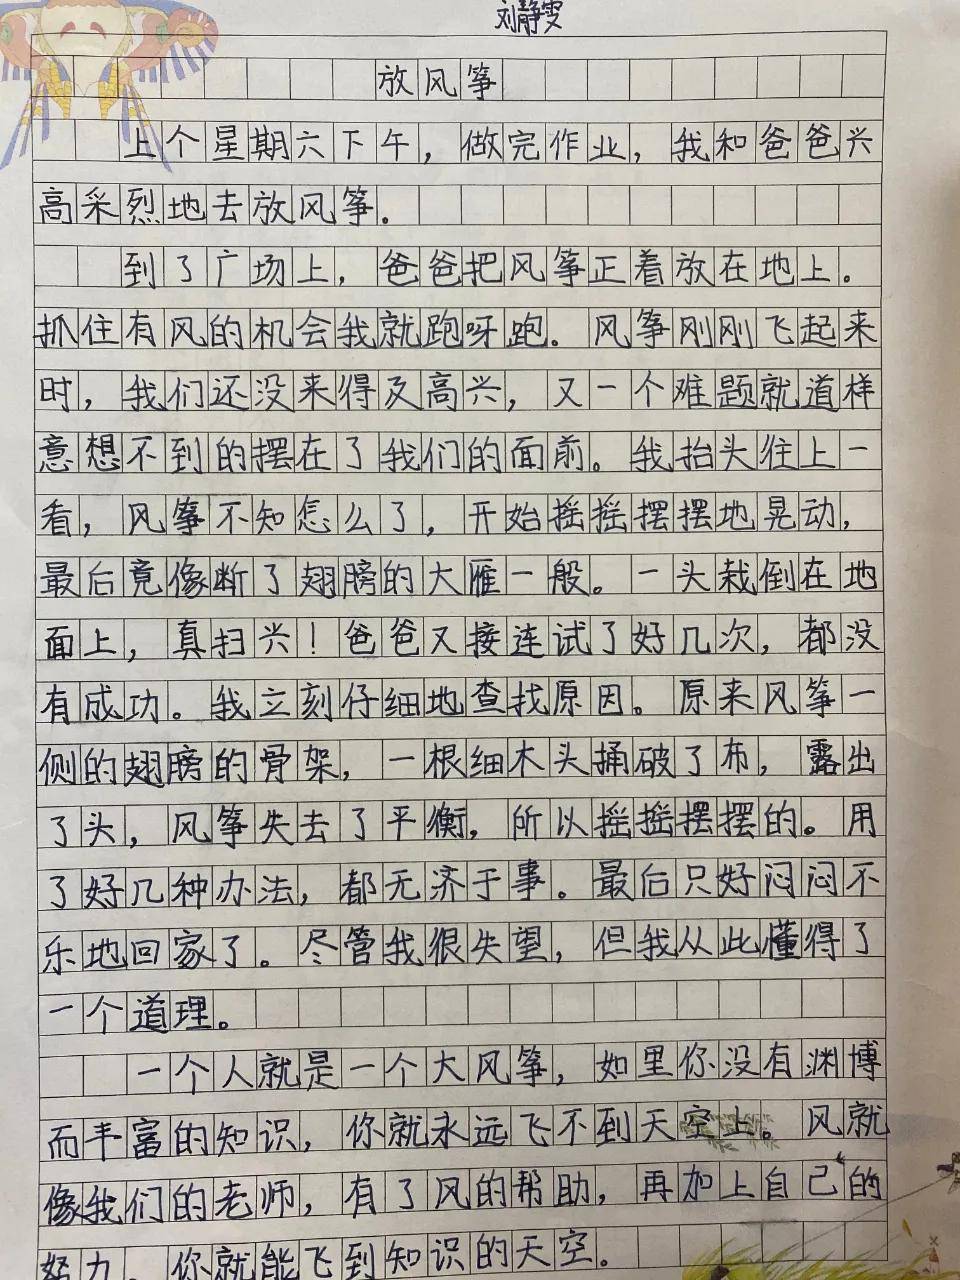 刘静雯
放风筝
上个星期六下午，做完作业，我和爸爸兴
高采烈地去放风筝.
到了广场上，爸爸把风筝正着放在地上。
抓住有风的机会我就跑呀跑。风筝刚刚飞起来
时，我们还没来得及高兴，又一个难题就道样
意想不到的摆在了我们的面前。我抬头往上一
看，风筝不知怎么了，开始摇摇摆摆地晃动，
最后竟像断了翅膀的大雁一般。一头栽倒在地
面上，真扫兴！爸爸又接连试了好几次，都没
有成功。我立刻仔细地查找原因。原来风筝一
侧的翅膀的骨架，一根细木头捅破了布，露出
了头，风筝失去了平衡，所以摇摇摆摆的。用
了好几种办法，都无济于事。最后只好闷闷不
乐地回家了。尽管我很失望，但我从此懂得了
一个道理。
一个人就是一个大风筝，如里你没有渊博
而丰富的知识，你就永远飞不到天空上。风就
像我们的老师，有了风的帮助，再加上自己的
努力，你就能飞到知识的天空。